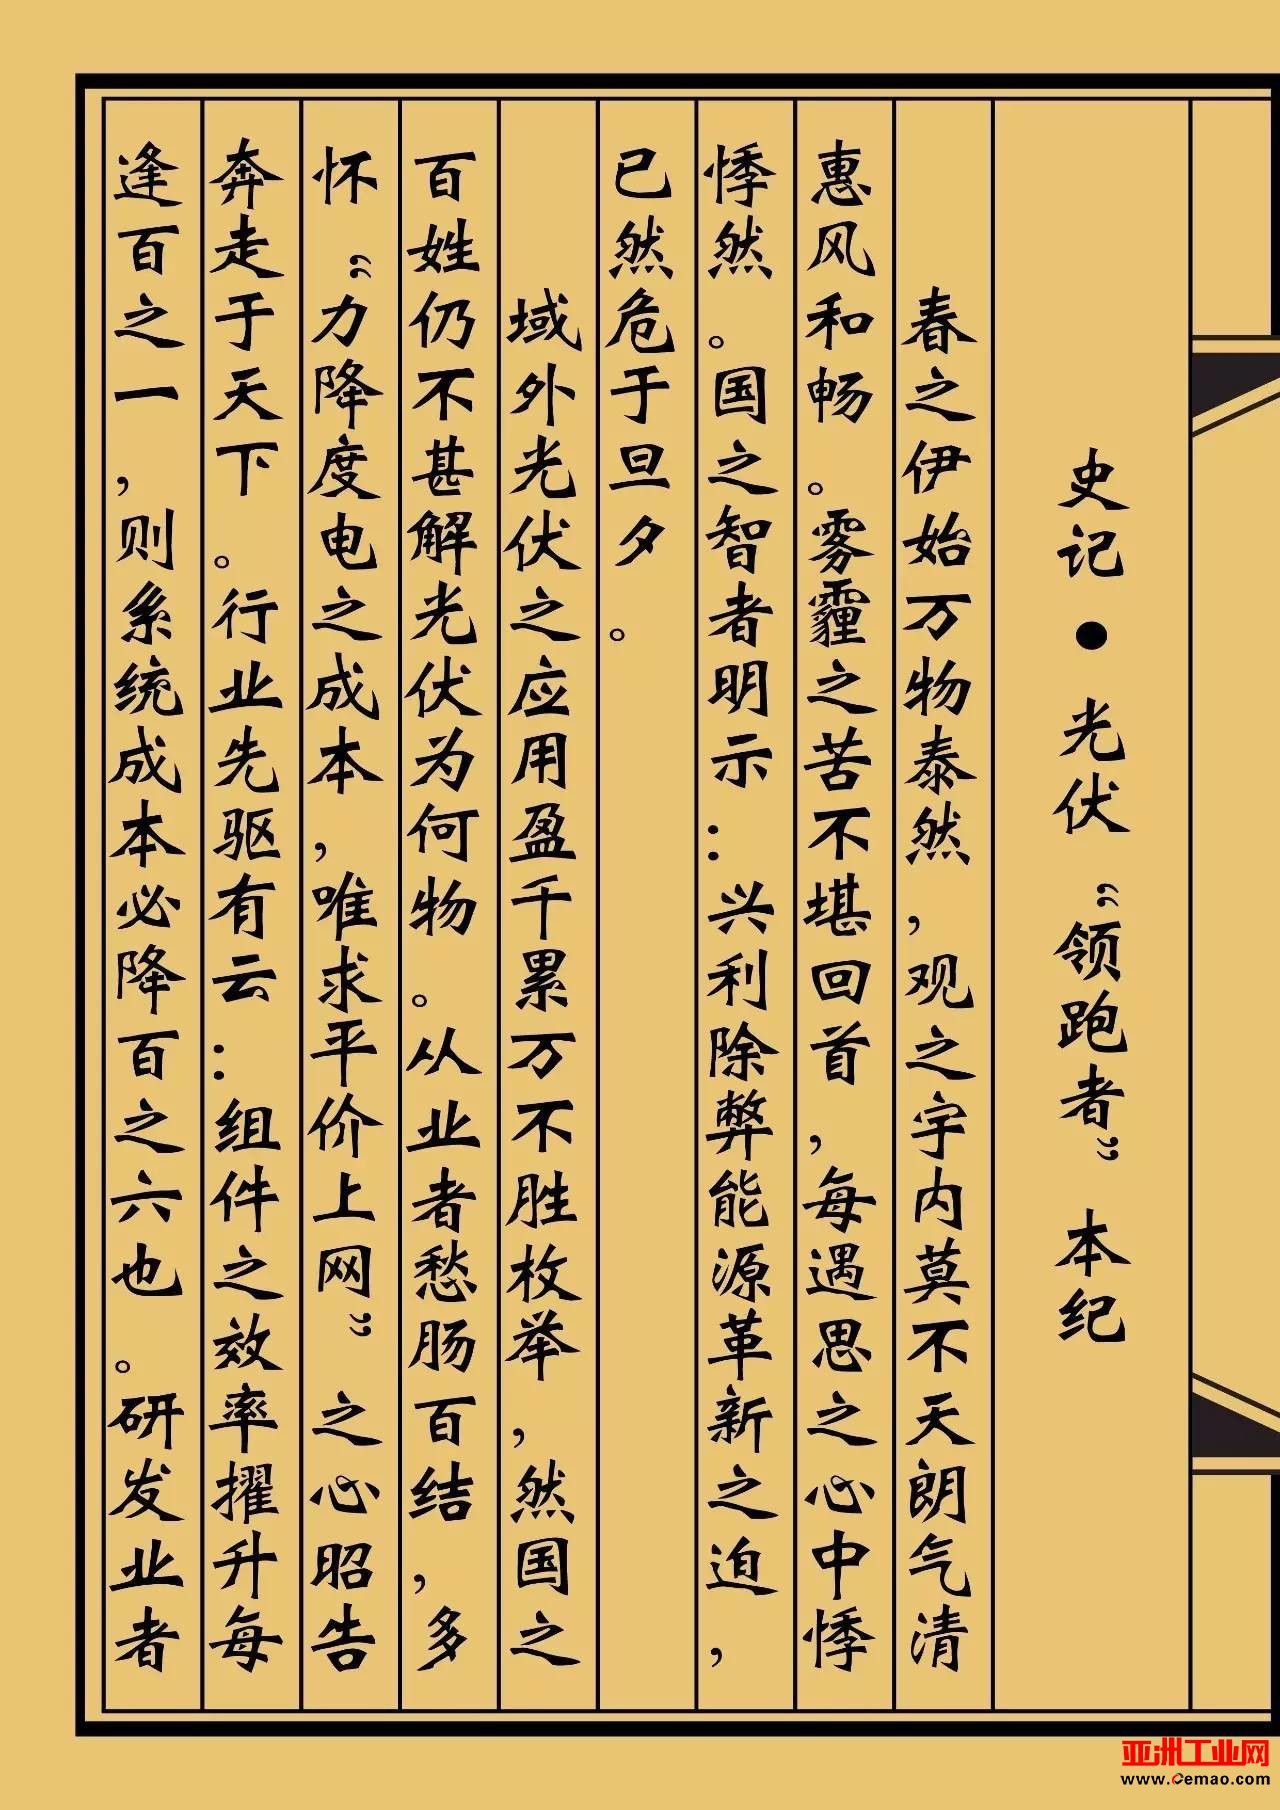 史记●光伏“领跑者”本纪
春之伊始万物泰然，观之宇内莫不天朗气清
惠风和畅。雾霾之苦不堪回首，每遇思之心中悸
悸然。国之智者明示：兴利除弊能源革新之迫，
已然危于旦夕。
域外光伏之应用盈千累万不胜枚举，然国之
百姓仍不甚解光伏为何物。从业者愁肠百结，多
怀“力降度电之成本，唯求平价上网”之心昭告
奔走于天下。行业先驱有云：组件之效率擢升每
逢百之一，则系统成本必降百之六也。研发业者
亚洲工业网
www.cemao.com